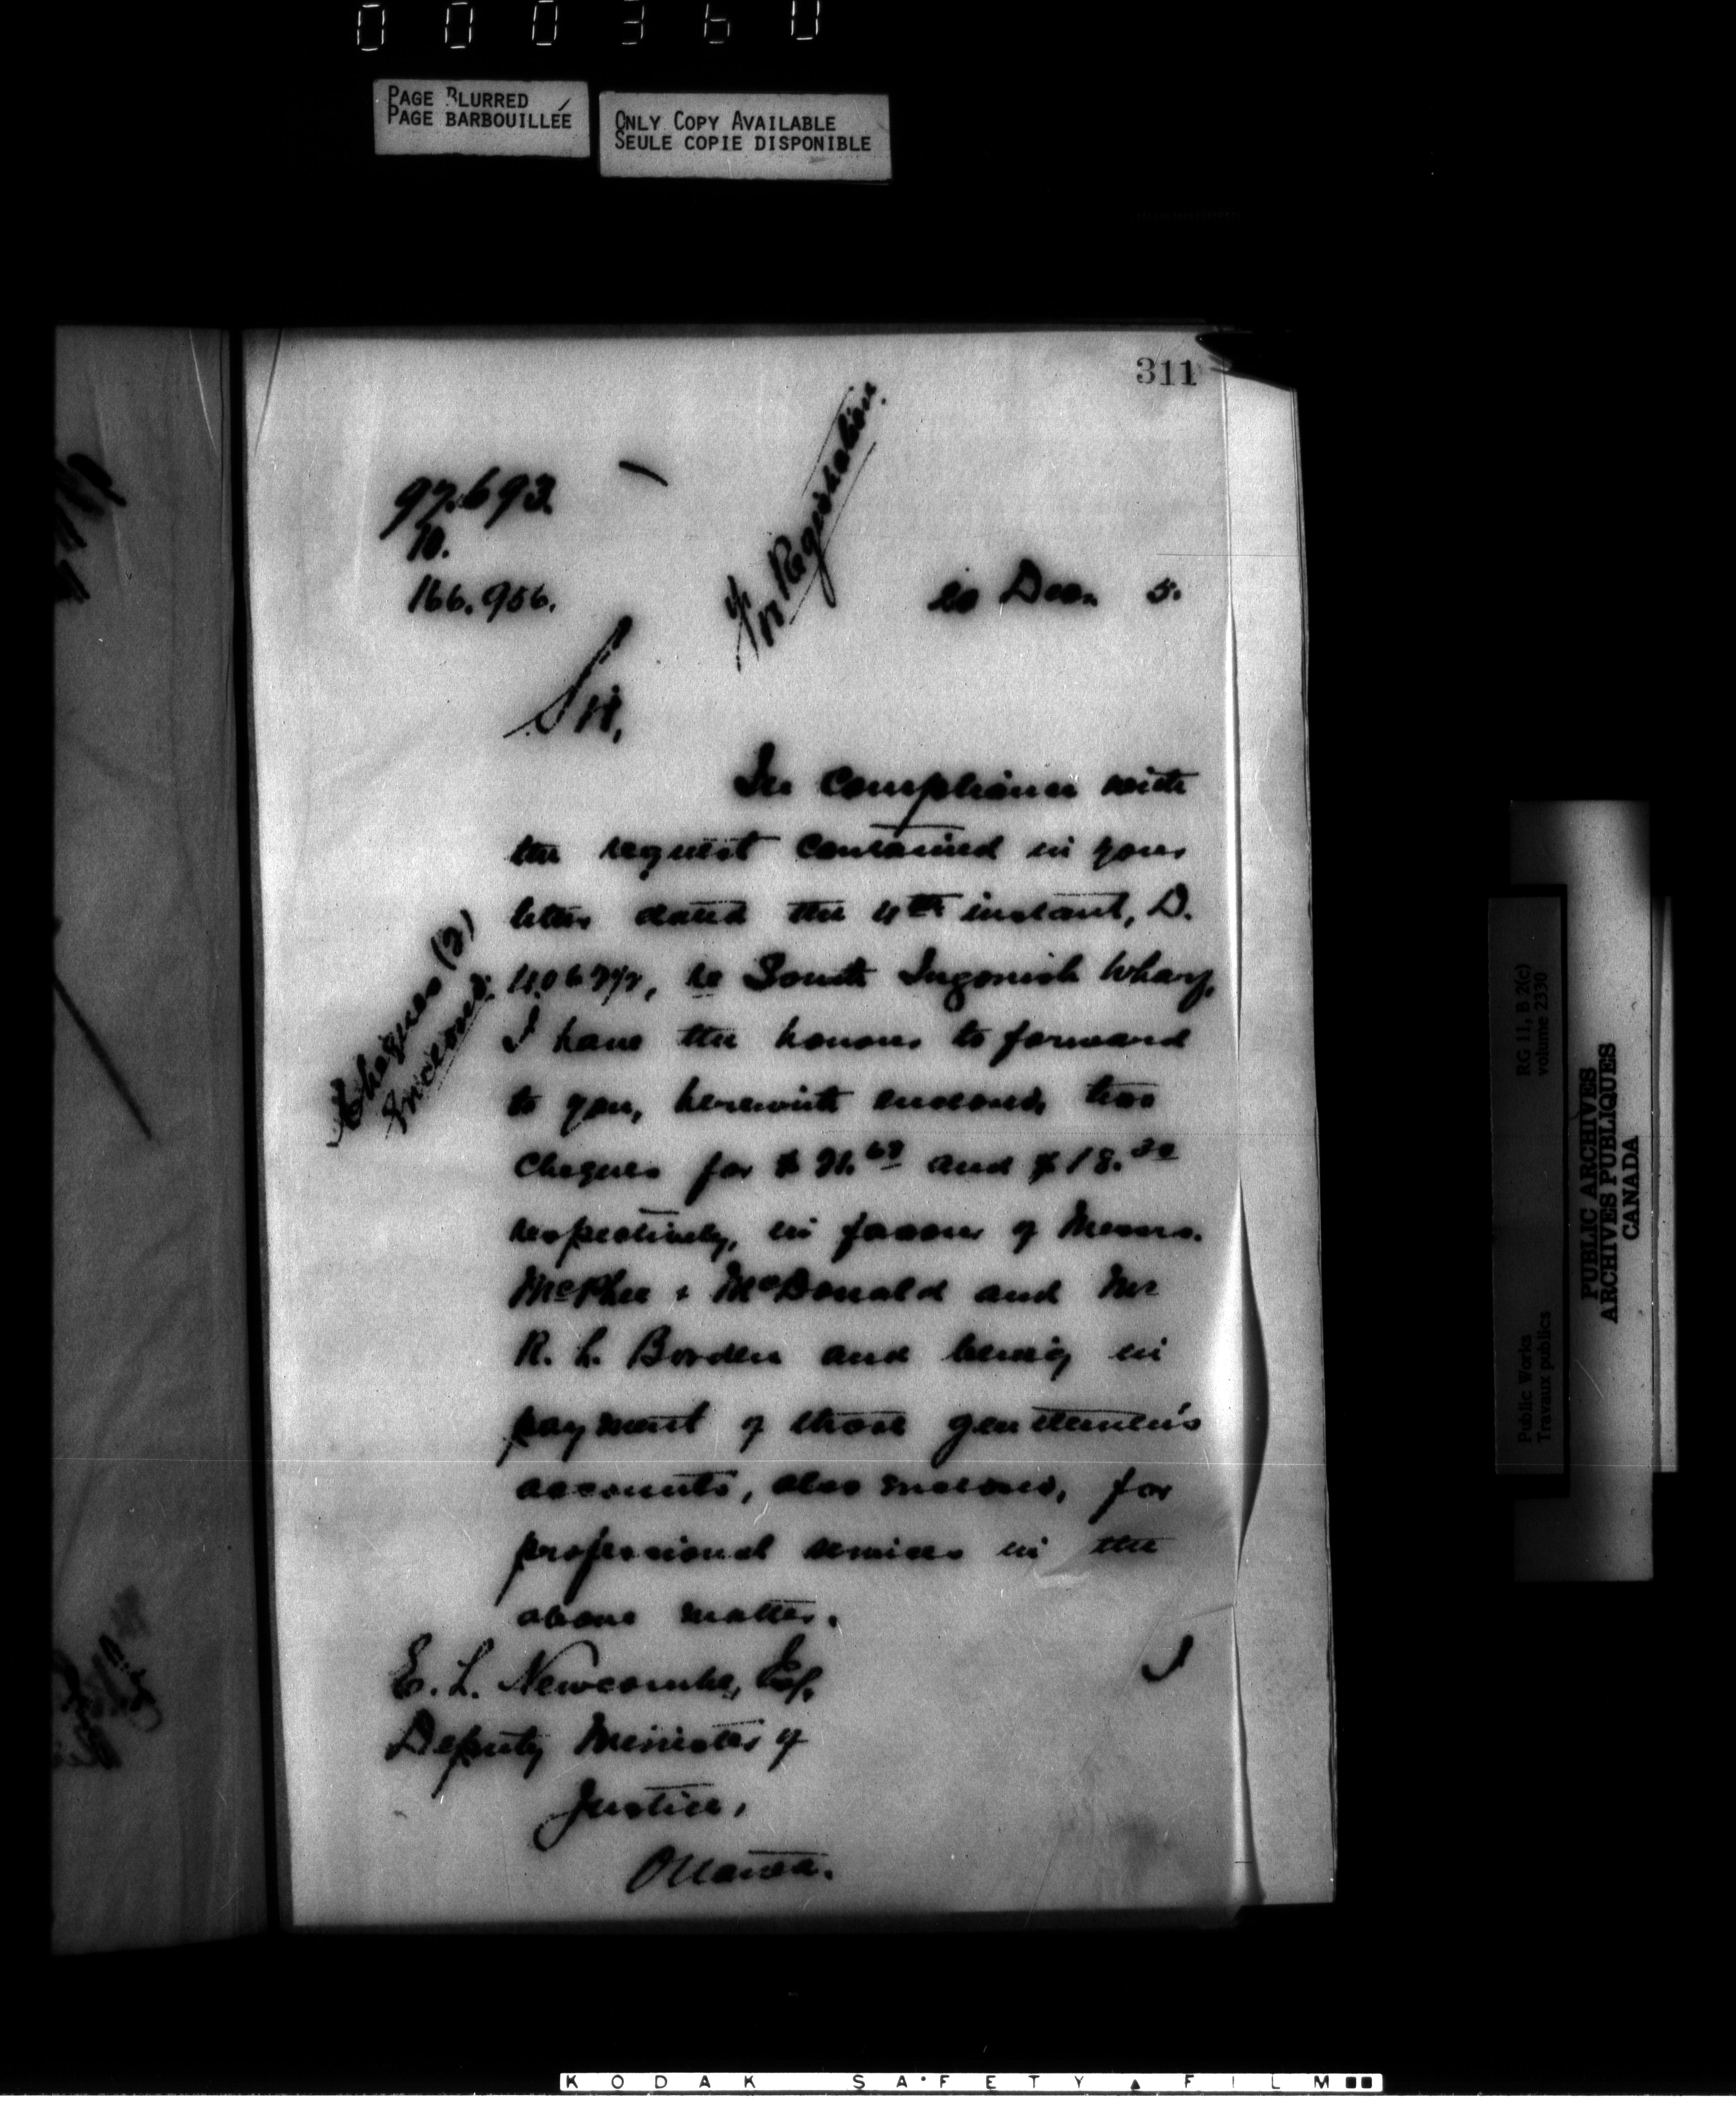 000360
PAGE BLURRED
PAGE BARBOUILLÉE
ONLY COPY AVAILABLE
SEULE COPIE DISPONIBLE
311
97.693.
10.
166.956.
Registration.
20 Dec. 5.
Sir,
In compliance with
the request contained in your
letter dated the 4th instant, D.
re South Ingonish Wharf,
I have the honour to forward
to you, herewith enclosed, two
cheques for and
respectively, in favour of Messrs.
McPhee & McDonald and Mr
R. L. Borden and being in
payment of those gentlemen's
accounts, also enclosed, for
professional services in the
above matter.
Cheques (2)
Enclosed.
E. L. Newcombe, Esq.
Deputy Minister of
Justice,
Ottawa.
I
RG 11, B 2(c)
volume 2330
Public Works
Travaux publics
PUBLIC ARCHIVES
ARCHIVES PUBLIQUES
CANADA
KODAK SAFETY FILM